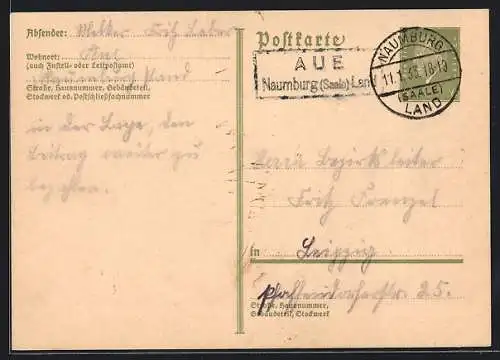 Absender: Melker Fritz Leber
Wohnort: Aue
(auch Zustell- oder Leitpostamt)
Naumburg Land
Straße, Hausnummer, Gebäudeteil,
Stockwerk od. Postschließfachnummer
in der Lage, den
Beitrag weiter zu
bezahlen.
Postkarte
AUE
Naumburg (Saale) Land
NAUMBURG
11.1.33.18-19
(SAALE)
LAND
Herrn Bezirksleiter
Fritz Frenzel
in Leipzig
Pfaffendorferstr. 25.
Straße, Hausnummer,
Gebäudeteil, Stockwerk